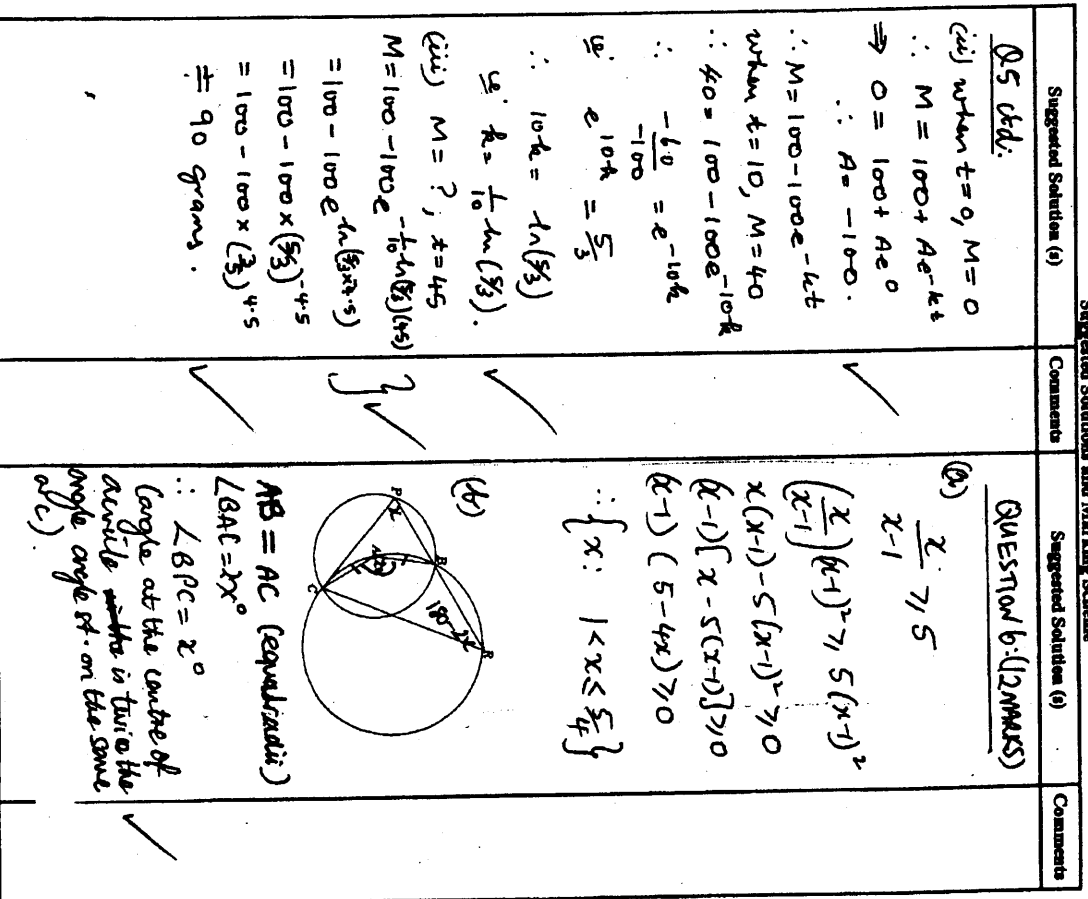 Suggested Solutions and Marking Scheme
Suggested Solution (s)
Comments
Suggested Solution (s)
Comments
Q5 ctd:
(ii) when t=0, M=0
∴ M = 100 + Ae^-kt
⇒ 0 = 100 + Ae^0
∴ A = -100.
∴ M = 100 - 100e^-kt
when t = 10, M = 40
∴ 40 = 100 - 100e^-10k
∴ -60/-100 = e^-10k
ie. e^10k = 5/3
∴ 10k = ln(5/3)
ie. k = 1/10 ln(5/3).
(iii) M = ?, t = 45
M = 100 - 100e^-1/10 ln(5/3)(45)
= 100 - 100e^ln(5/3)x-4.5)
= 100 - 100 x (5/3)^-4.5
= 100 - 100 x (3/5)^4.5
≑ 90 grams.
QUESTION 6: (12 MARKS)
(a) x/x-1 ≥ 5
(x/x-1)(x-1)² ≥ 5(x-1)²
x(x-1) - 5(x-1)² ≥ 0
(x-1)[x - 5(x-1)] ≥ 0
(x-1)(5-4x) ≥ 0
∴ {x: 1 < x ≤ 5/4}
(b)
P
x
B
A
2x
C
180-2x
R
AB = AC (equal radii)
∠BAC = 2x°
∴ ∠BPC = x°
(angle at the centre of
a circle is twice the
angle angle st. on the same
arc).